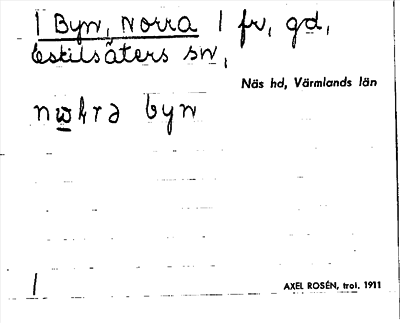 1 Byn, Norra 1 fr, gd,
Eskilsäters sn,
Näs hd, Värmlands län
byn
1
AXEL ROSÉN, trol. 1911